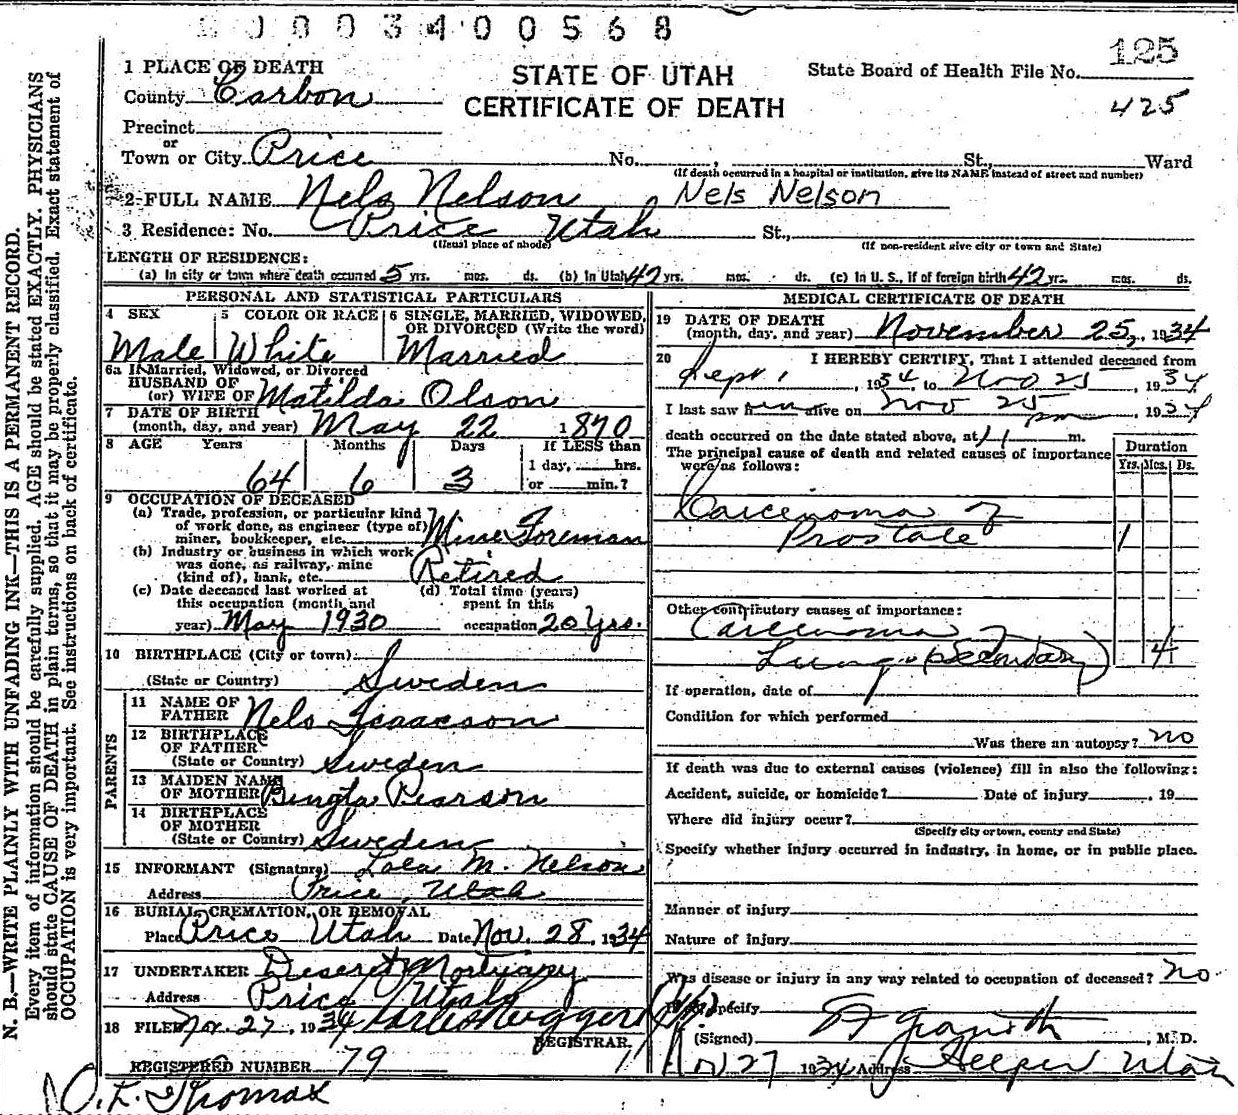 0003400568
125
1 PLACE OF DEATH
STATE OF UTAH
State Board of Health File No.
County Carbon
CERTIFICATE OF DEATH
425
Precinct
or
Town or City Price No. , St., Ward
(If death occurred in a hospital or institution, give its NAME instead of street and number)
2 FULL NAME Nels Nelson Nels Nelson
3 Residence: No. Price Utah St.,
(Usual place of abode) (If non-resident give city or town and State)
LENGTH OF RESIDENCE:
(a) In city or town where death occurred 5 yrs. mos. ds. (b) In Utah 42 yrs. mos. ds. (c) In U. S., if of foreign birth 42 yrs. mos. ds.
PERSONAL AND STATISTICAL PARTICULARS
4 SEX 5 COLOR OR RACE 6 SINGLE, MARRIED, WIDOWED, OR DIVORCED (Write the word)
Male White Married
6a If Married, Widowed, or Divorced
HUSBAND OF
(or) WIFE OF Matilda Olson
7 DATE OF BIRTH
(month, day, and year) May 22 1870
8 AGE Years Months Days If LESS than
1 day, hrs.
64 6 3 or min.?
9 OCCUPATION OF DECEASED
(a) Trade, profession, or particular kind
of work done, as engineer (type of)
miner, bookkeeper, etc. Mine Foreman
(b) Industry or business in which work
was done, as railway, mine
(kind of), bank, etc. Retired
(c) Date deceased last worked at
this occupation (month and
year) May 1930
(d) Total time (years)
spent in this
occupation 20 Yrs.
10 BIRTHPLACE (City or town)
(State or Country) Sweden
PARENTS
11 NAME OF
FATHER Nels Isaacson
12 BIRTHPLACE
OF FATHER
(State or Country) Sweden
13 MAIDEN NAME
OF MOTHER Bingta Pearson
14 BIRTHPLACE
OF MOTHER
(State or Country) Sweden
15 INFORMANT (Signature) Lola M. Nelson
Address Price, Utah
16 BURIAL, CREMATION, OR REMOVAL
Place Price Utah Date Nov. 28, 1934
17 UNDERTAKER Deseret Mortuary
Address Price Utah
18 FILED Nov. 27, 1934
REGISTRAR.
REGISTERED NUMBER 79
O. K. Thomas
MEDICAL CERTIFICATE OF DEATH
19 DATE OF DEATH
(month, day, and year) November 25, 1934
20 I HEREBY CERTIFY, That I attended deceased from
Sept 1, 1934, to Nov 25, 1934
I last saw him alive on Nov 25, 1934
death occurred on the date stated above, at 11 pm m.
The principal cause of death and related causes of importance
were as follows:
Duration
Yrs. Mos. Ds.
Carcinoma of
Prostate 1
Other contributory causes of importance:
Carcinoma of
Lungs (Secondary) 4
If operation, date of
Condition for which performed
Was there an autopsy? no
If death was due to external causes (violence) fill in also the following:
Accident, suicide, or homicide? Date of injury , 19
Where did injury occur?
(Specify city or town, county and State)
Specify whether injury occurred in industry, in home, or in public place.
Manner of injury
Nature of injury
Was disease or injury in any way related to occupation of deceased? no
If so, specify
(Signed) , M. D.
Nov 27 1934 Address Helper Utah
N. B.—WRITE PLAINLY WITH UNFADING INK—THIS IS A PERMANENT RECORD.
Every item of information should be carefully supplied. AGE should be stated EXACTLY. PHYSICIANS
should state CAUSE OF DEATH in plain terms, so that it may be properly classified. Exact statement of
OCCUPATION is very important. See instructions on back of certificate.